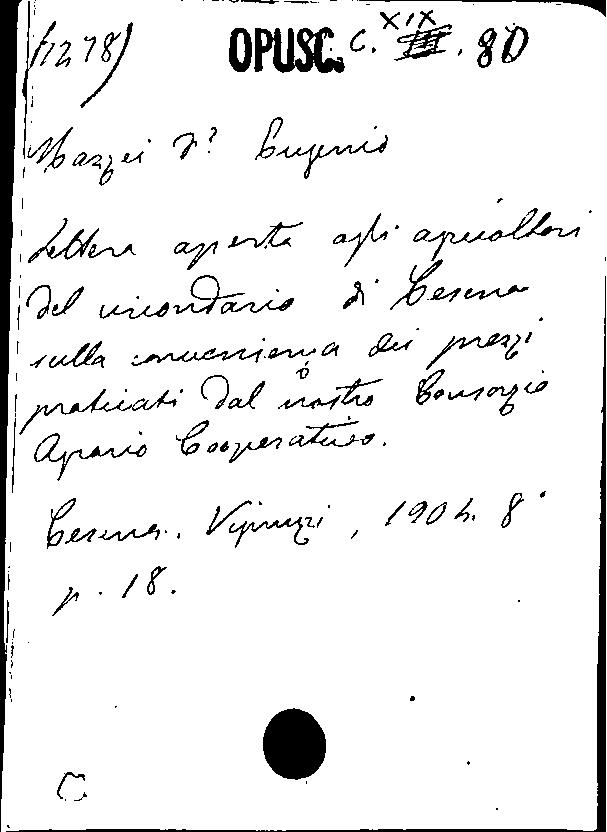 (1278) OPUSC. C. XIX. 80
Mazzei D.r Eugenio
Lettera aperta agli apicoltori
del circondario di Cesena
sulla convenienza dei prezzi
praticati dal nostro Consorzio
Apario Cooperativo.
Cesena. Vignuzzi, 1904. 8°
p. 18.
C